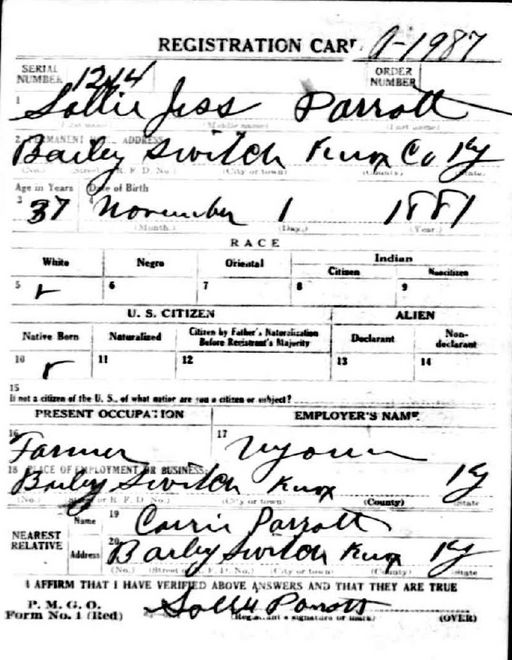 REGISTRATION CARD A-1987
SERIAL NUMBER 1214 ORDER NUMBER
1 Sollie Jess Parrott
(First name) (Middle name) (Last name)
2 PERMANENT HOME ADDRESS:
Bailey Switch Knox Co Ky
(No.) (Street or R. F. D. No.) (City or town) (County) (State)
Age in Years Date of Birth
3 37 4 November 1 1881
(Month.) (Day.) (Year.)
RACE
White Negro Oriental Indian
Citizen Noncitizen
5 ✓ 6 7 8 9
U. S. CITIZEN ALIEN
Native Born Naturalized Citizen by Father's Naturalization Before Registrant's Majority Declarant Non-declarant
10 ✓ 11 12 13 14
15
If not a citizen of the U. S., of what nation are you a citizen or subject?
PRESENT OCCUPATION EMPLOYER'S NAME
16 Farmer 17
18 PLACE OF EMPLOYMENT OR BUSINESS:
Bailey Switch Knox Ky
(No.) (Street or R. F. D. No.) (City or town) (County) (State
NEAREST RELATIVE Name 19 Carrie Parrott
Address 20 Bailey Switch Knox Ky
(No.) (Street or R. F. D. No.) (City or town) (County) (State
I AFFIRM THAT I HAVE VERIFIED ABOVE ANSWERS AND THAT THEY ARE TRUE
P. M. G. O.
Form No. 1 (Red) Sollie Parrott
(Registrant's signature or mark) (OVER)